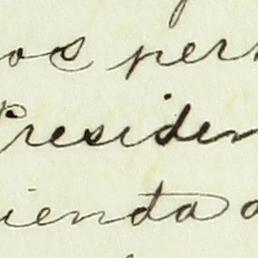 os per
Presiden
ienda a